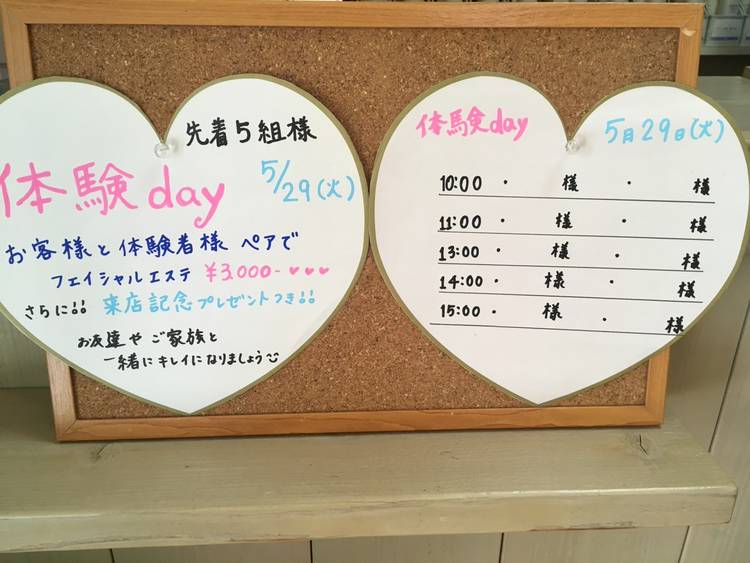 先着5組様
体験day
5/29(火)
お客様と体験者様 ペアで
フェイシャルエステ ¥3,000-♥♥♥
さらに!! 来店記念プレゼントつき!!
お友達や ご家族と
一緒に キレイになりましょう
体験day 5月29日(火)
10:00 ・ 様 ・ 様
11:00 ・ 様 ・ 様
13:00 ・ 様 ・ 様
14:00 ・ 様 ・ 様
15:00 ・ 様 ・ 様